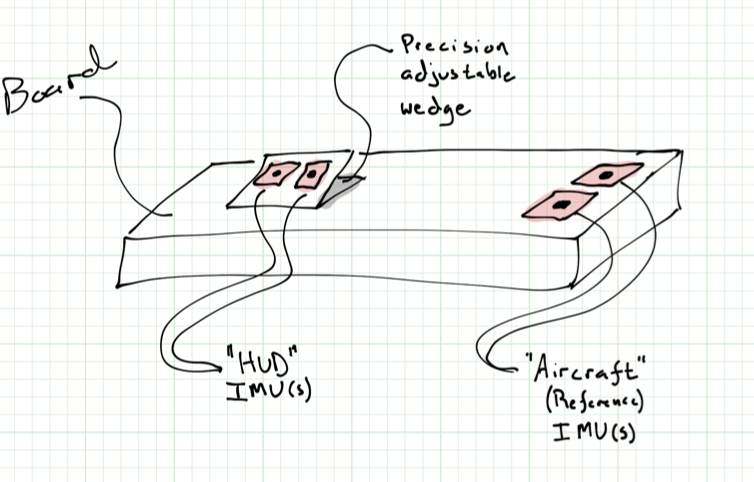 Precision
adjustable
wedge
Board
"HUD"
IMU(s)
"Aircraft"
(Reference)
IMU(s)